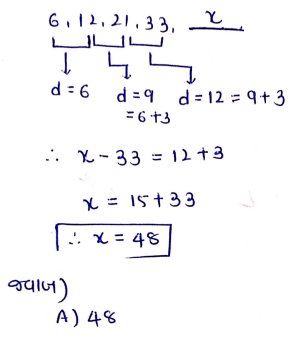 6, 12, 21, 33, x
d = 6 d = 9 d = 12 = 9 + 3
= 6 + 3
∴ x - 33 = 12 + 3
x = 15 + 33
∴ x = 48
જવાબ)
A) 48